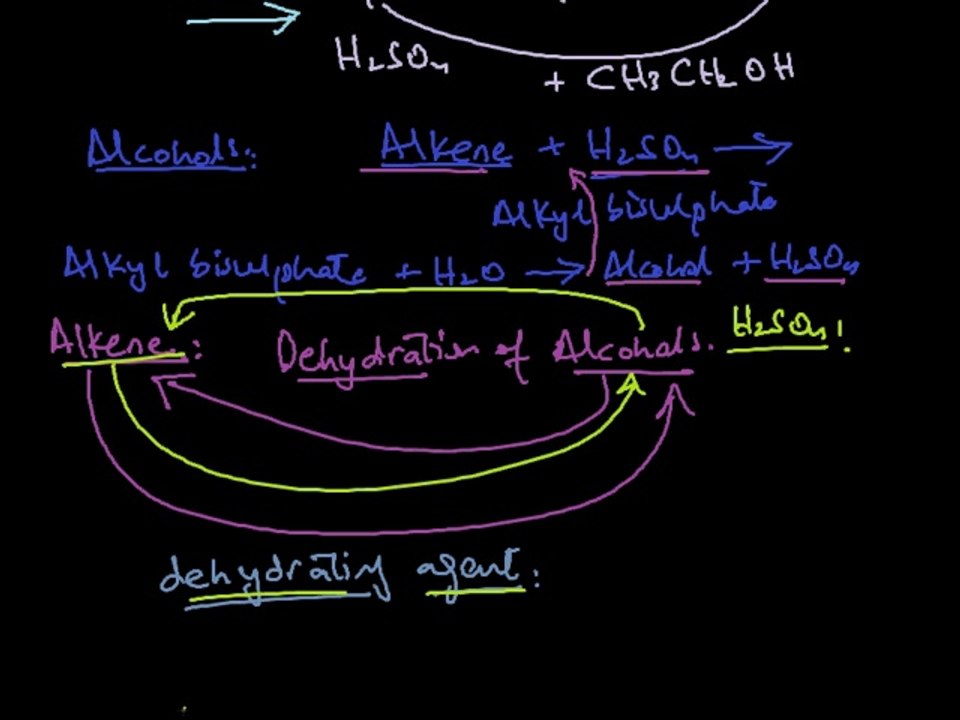 H₂SO₄
+ CH3 CH2 OH
Alcohols: Alkene + H₂SO₄ →
Alkyl bisulphate
Alkyl bisulphate + H₂O → Alcohol + H₂SO₄
Alkene: Dehydration of Alcohols. H₂SO₄!
dehydrating agent: